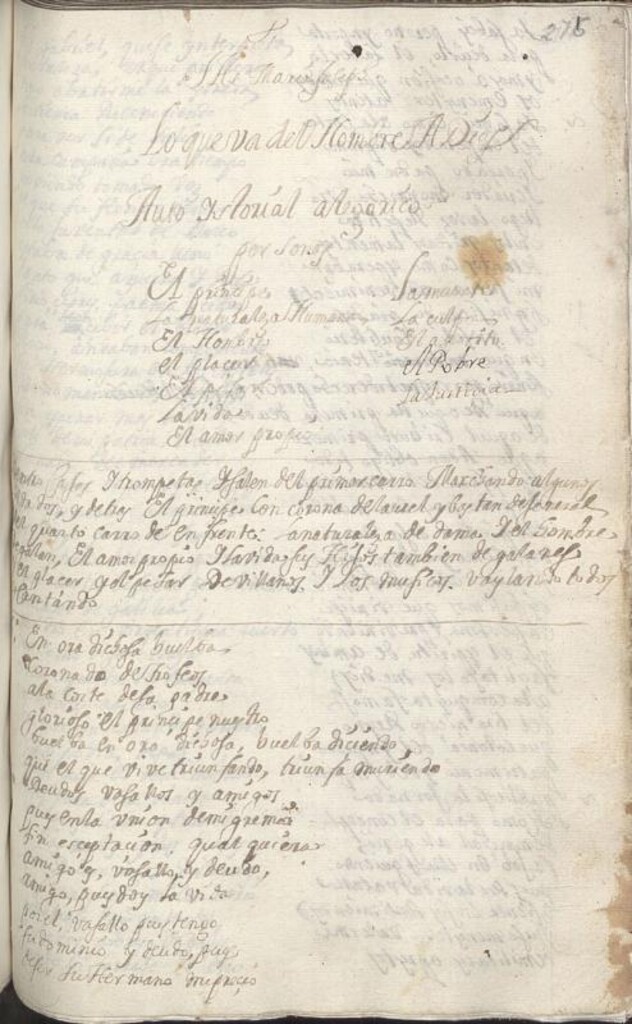 275
Jhs Maria Joseph
Lo que va del Hombre A Dios
Auto ystorial alegorico
personas
El principe
La naturaleza Humana
El Hombre
el placer
El pesar
La vida
El amor propio
La muerte
La culpa
El apetito
el Pobre
La Justicia
Caxas y trompetas y salen del primer carro Marchando algunos
soldados, y detras El principe Con corona de laurel y baston de general
el quarto carro de en frente: La naturaleza de dama, y el hombre
de galan, El amor propio y la vida sus Hijos tambien de galanes
El placer y el pesar De villanos. y Los musicos. vaylando todos
Cantando
En ora dichosa buelba
Corona do de trofeos
a la corte de su padre
glorioso el principe nuestro
buelba en ora dichosa, buelba diciendo,
que el que vive triunfando, triunfa muriendo
Deudos vasallos y amigos
pues en la union de mi gremio
sin esceptacion qual quiera
amigo es, vasallo, y deudo,
amigo, pues doy la vida
por el, vasallo pues tengo
su dominio y deudo, pues
de ser su Hermano me precio